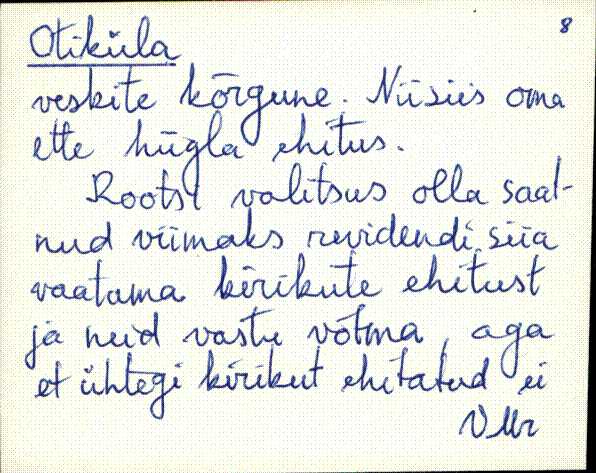 8
Otiküla
veskite kõrgune. Niisiis oma
ette hügla ehitus.
Rootsi valitsus olla saat-
nud viimaks revidendi siia
vaatama kirikute ehitust
ja neid vastu võtma, aga
et ühtegi kirikut ehitatud ei